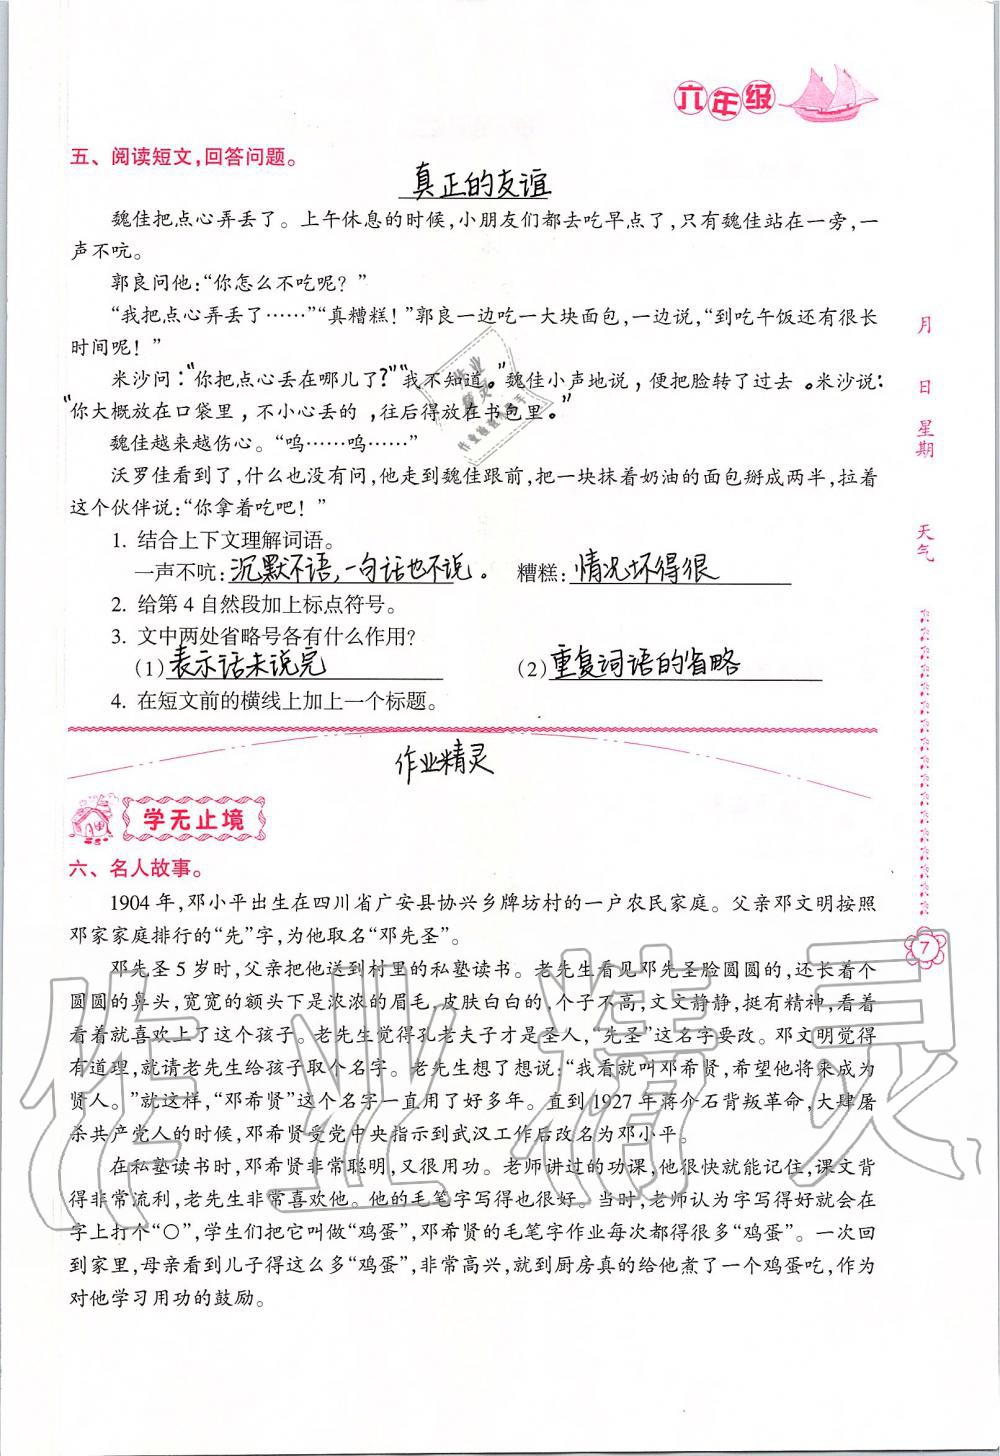 六年级
五、阅读短文,回答问题。
真正的友谊
魏佳把点心弄丢了。上午休息的时候,小朋友们都去吃早点了,只有魏佳站在一旁,一
声不吭。
郭良问他:“你怎么不吃呢？”
“我把点心弄丢了……”“真糟糕！”郭良一边吃一大块面包,一边说,“到吃午饭还有很长
时间呢！”
米沙问:“你把点心丢在哪儿了?”“我不知道。”魏佳小声地说,便把脸转了过去。米沙说:
“你大概放在口袋里,不小心丢的,往后得放在书包里。”
魏佳越来越伤心。“呜……呜……”
沃罗佳看到了,什么也没有问,他走到魏佳跟前,把一块抹着奶油的面包掰成两半,拉着
这个伙伴说:“你拿着吃吧！”
1. 结合上下文理解词语。
一声不吭:沉默不语,一句话也不说。 糟糕:情况坏得很
2. 给第 4 自然段加上标点符号。
3. 文中两处省略号各有什么作用?
(1)表示话未说完 (2)重复词语的省略
4. 在短文前的横线上加上一个标题。
作业精灵
学无止境
六、名人故事。
1904 年,邓小平出生在四川省广安县协兴乡牌坊村的一户农民家庭。父亲邓文明按照
邓家家庭排行的“先”字,为他取名“邓先圣”。
邓先圣 5 岁时,父亲把他送到村里的私塾读书。老先生看见邓先圣脸圆圆的,还长着个
圆圆的鼻头,宽宽的额头下是浓浓的眉毛,皮肤白白的,个子不高,文文静静,挺有精神,看着
看着就喜欢上了这个孩子。老先生觉得孔老夫子才是圣人,“先圣”这名字要改。邓文明觉得
有道理,就请老先生给孩子取个名字。老先生想了想说:“我看就叫邓希贤,希望他将来成为
贤人。”就这样,“邓希贤”这个名字一直用了好多年。直到 1927 年蒋介石背叛革命,大肆屠
杀共产党人的时候,邓希贤受党中央指示到武汉工作后改名为邓小平。
在私塾读书时,邓希贤非常聪明,又很用功。老师讲过的功课,他很快就能记住,课文背
得非常流利,老先生非常喜欢他。他的毛笔字写得也很好。当时,老师认为字写得好就会在
字上打个“○”,学生们把它叫做“鸡蛋”,邓希贤的毛笔字作业每次都得很多“鸡蛋”。一次回
到家里,母亲看到儿子得这么多“鸡蛋”,非常高兴,就到厨房真的给他煮了一个鸡蛋吃,作为
对他学习用功的鼓励。
月
日
星期
天气
7
作业精灵